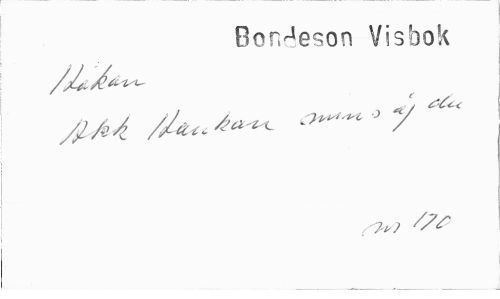 Bondeson Visbok
Håkan
Akk Haukan mins äj du
nr 170